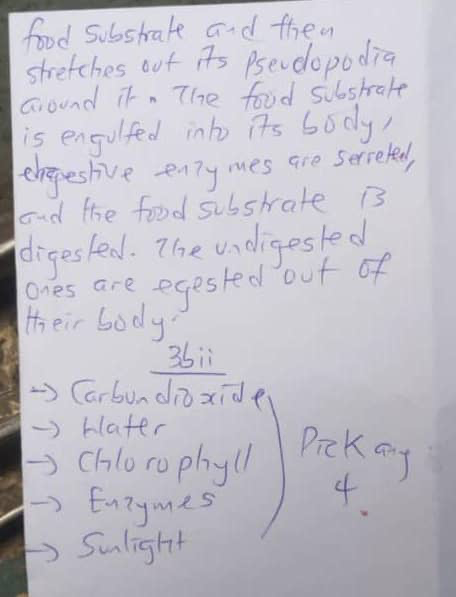 food substrate and then
stretches out its Pseudopodia
around it. The food substrate
is engulfed into its body,
digestive enzymes are secreted,
and the food substrate is
digested. The undigested
ones are egested out of
their body.
3bii
→ Carbundioxide
→ Water
→ Chlorophyll
→ Enzymes
→ Sunlight
Pick any
4